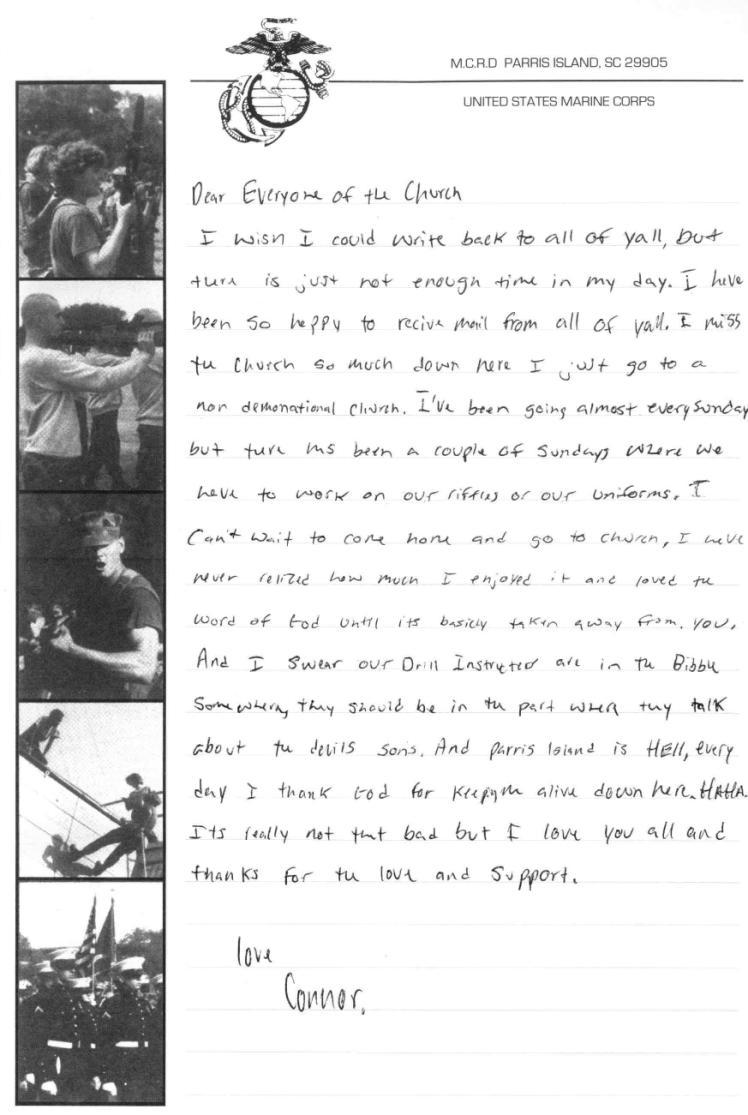 M.C.R.D PARRIS ISLAND, SC 29905
UNITED STATES MARINE CORPS
Dear Everyone of the Church
I wish I could write back to all of yall, but
ture is just not enough time in my day. I have
been so happy to recive mail from all of yall. I miss
the Church so much down here I just go to a
non demonational church. I've been going almost every Sunday
but ture has been a couple of Sundays where we
have to work on our riffles or our uniforms. I
Can't wait to come home and go to church, I have
never relized how much I enjoyed it and loved the
word of God until its basicly taken away from. you.
And I swear our Drill Instructed are in the Bibbu
Somewhere, they should be in the part where they talk
about the devils sons. And Parris Island is HELL, every
day I thank God for keepyn alive down here. HAHA.
Its really not that bad but I love you all and
thanks for the love and Support.
love
Connor.